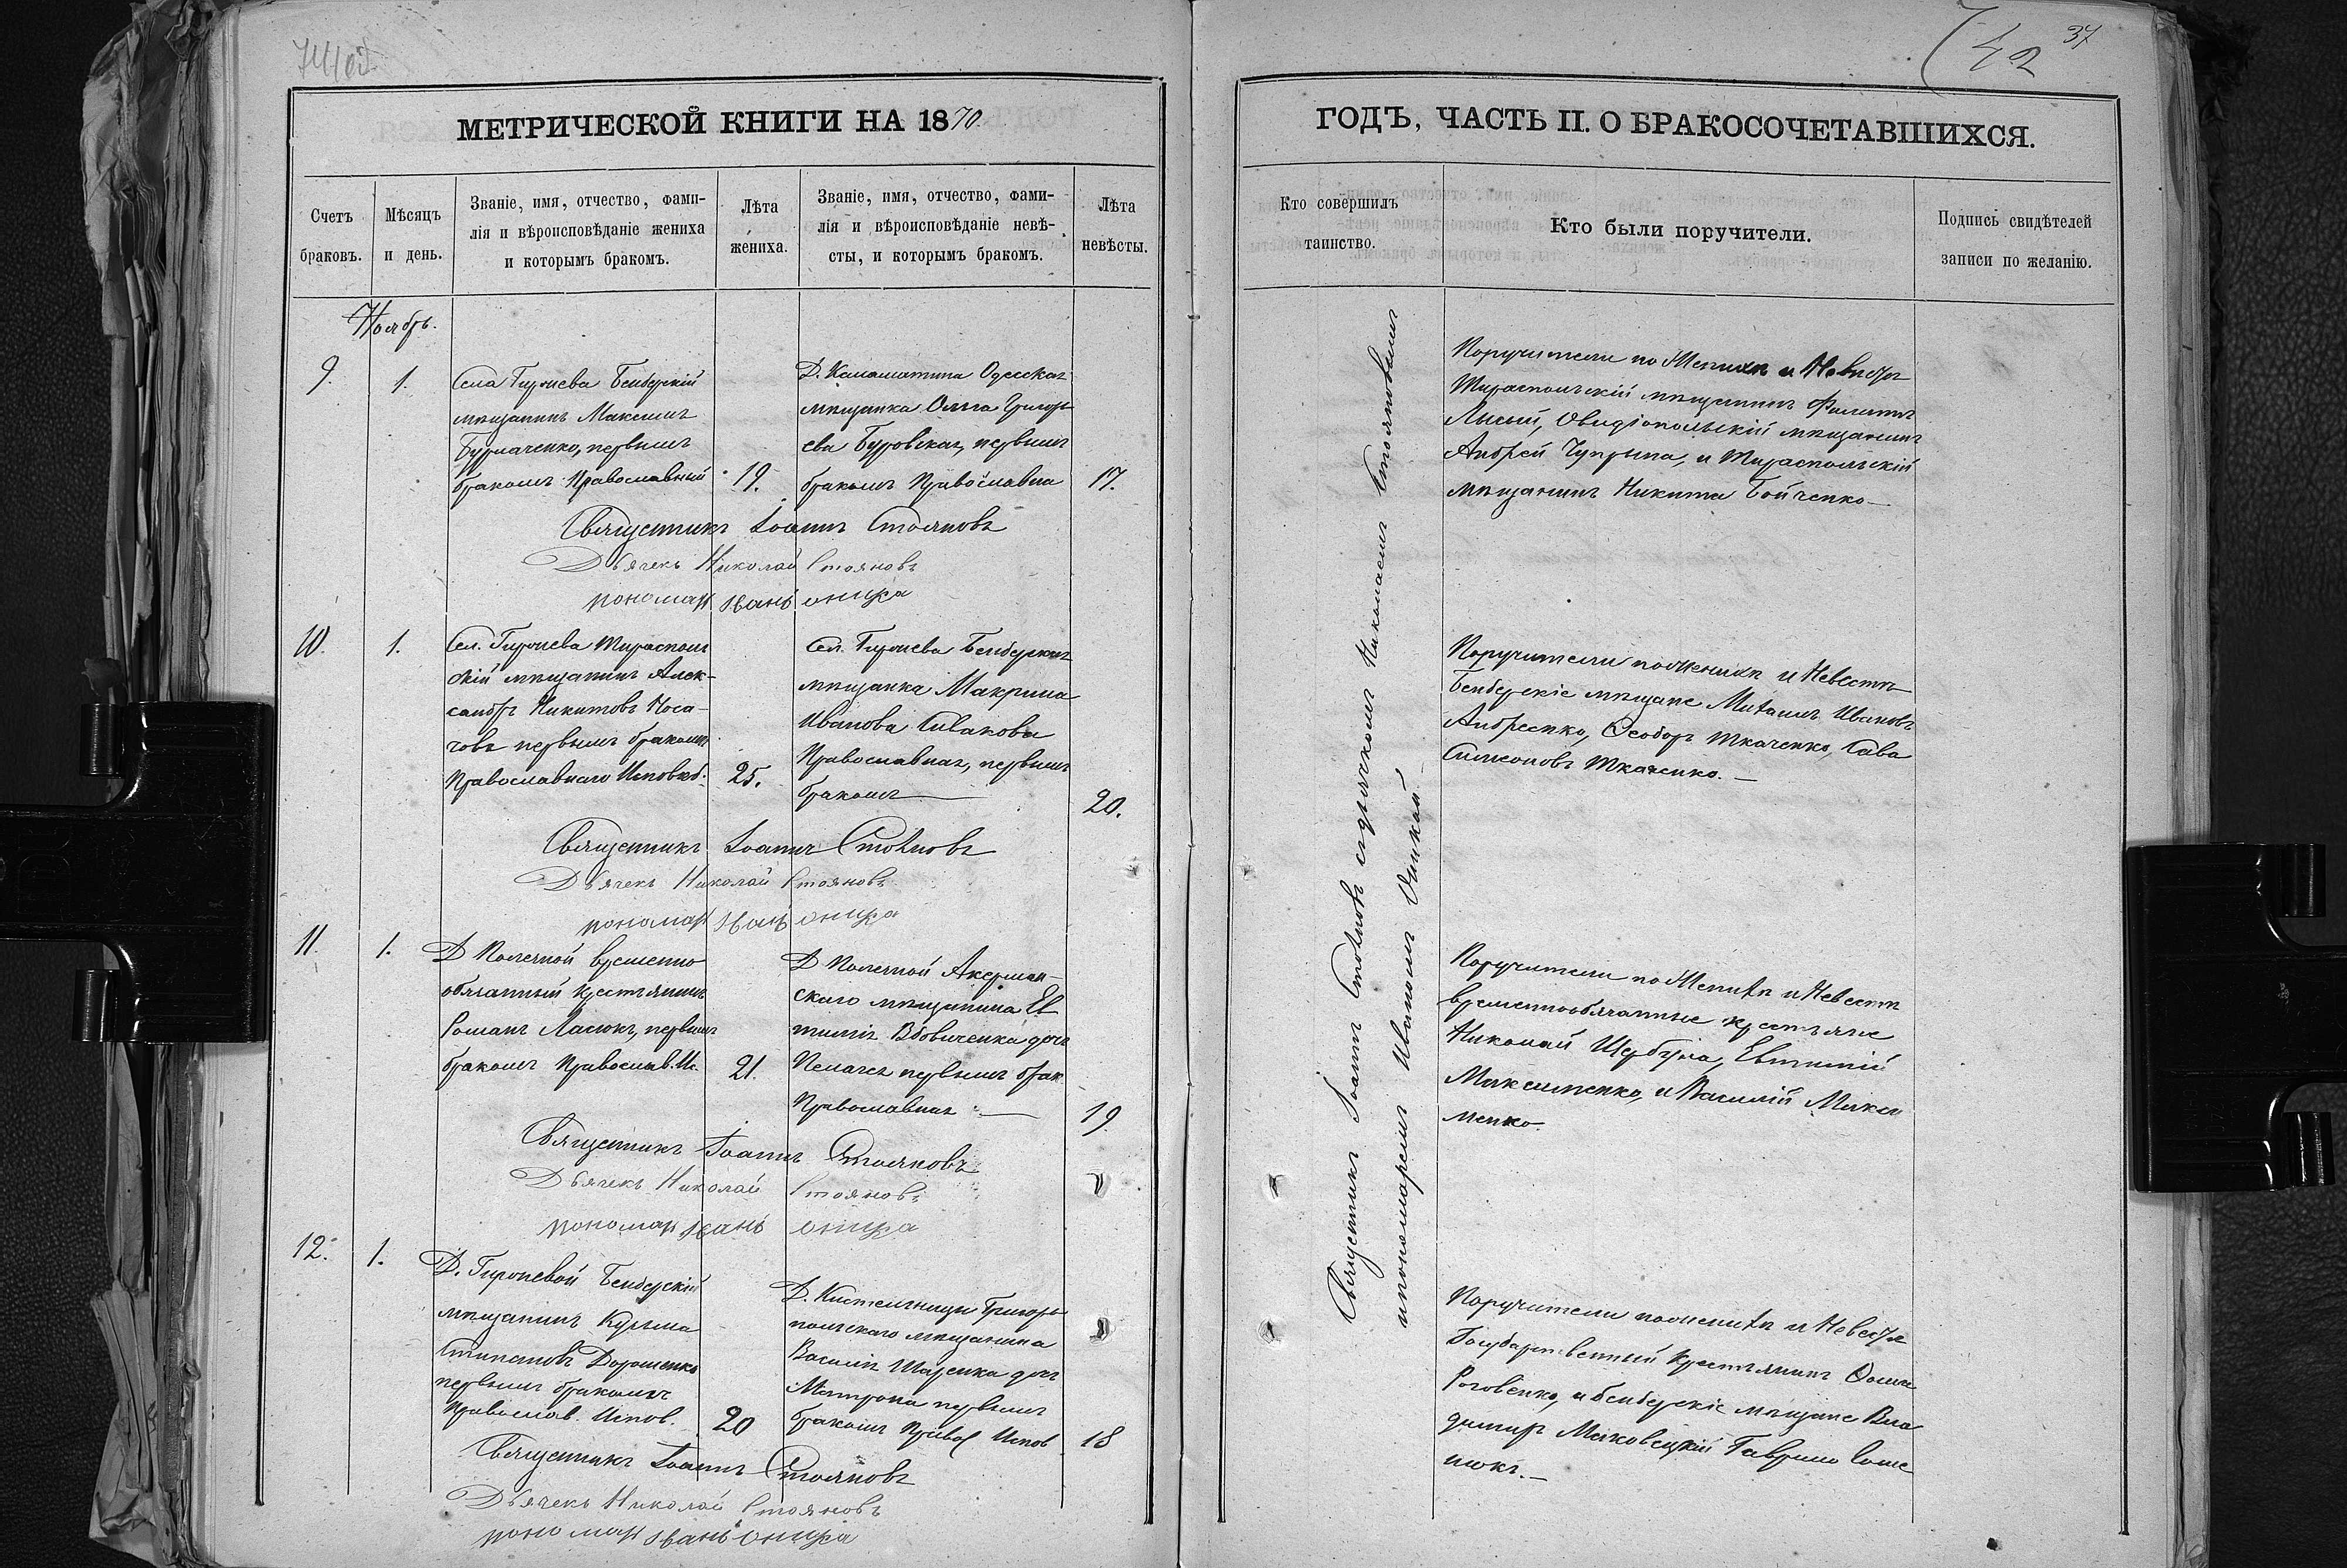 42
37
МЕТРИЧЕСКОЙ КНИГИ НА 1870
Счетъ
браковъ.
Мѣсяцъ
и день.
Званіе, имя, отчество, фами-
лія и вѣроисповѣданіе жениха
и которымъ бракомъ.
Лѣта
жениха.
Званіе, имя, отчество, фами-
лія и вѣроисповѣданіе невѣ-
сты, и которымъ бракомъ.
Лѣта
невѣсты.
Ноябрь.
9.
1.
Села Гиржева Бендерскій
мѣщанинъ Максимъ
Бурлаченко, первымъ
бракомъ Православный
19.
Д. Одесская
мѣщанка Ольга Григорь
ева Буровская, первымъ
бракомъ Православна
17.
Священникъ Іоаннъ Стояновъ
Дьячекъ Николай Стояновъ
пономарь Иванъ
10.
1.
Сел. Гиржева Тираспол
скій мѣщанинъ Алек-
сандръ НикитовъНоса-
човъ первымъ бракомъ
Православнаго Исповѣд.
25.
Сел. Гиржева Бендерская
мѣщанка Макрина
Иванова Сивакова
Православная, первымъ
бракомъ
20.
Священникъ Іоаннъ Стояновъ
Дьячекъ Николай Стояновъ
пономарь Иванъ
11.
1.
Д временно
обязанный крестьянинъ
Романъ первымъ
бракомъ Православ. Ис.
21.
Д Акерман-
скаго мѣщанина Ев
тимія Вдовиченка дочь
Пелагея первымъ брак.
Православная
19
Священникъ Іоаннъ Стояновъ
Дьячекъ Николай Стояновъ
пономарь Иванъ
12.
1.
Д. Гиржевой Бендерскій
мѣщанинъ Кузьма
Стипановъ Дорошенко
первымъ бракомъ
Православ. Испов.
20
Д. Григорь
польскаго мѣщанина
Василія Шаренка дочь
Матрона первымъ
бракомъ Правос Испов
18
Священникъ Іоаннъ Стояновъ
Дьячекъ Николай Стояновъ
пономарь Иванъ
ГОДЪ, ЧАСТЬ II. О БРАКОСОЧЕТАВШИХСЯ.
Кто совершилъ
таинство.
Кто были поручители.
Подпись свидѣтелей
записи по желанію.
Священникъ Іоаннъ Стояновъ съ дьячкомъ Николаемъ Стояновымъ
и пономаремъ Иваномъ
Поручители по Женихѣ и Невѣстѣ
Тираспольскій мѣщанинъ Филиппъ
Лысый, Овидіопольскій мѣщанинъ
Андрей Чуприна, и Тираспольскій
мѣщанинъ Никита Бойченко
Поручители по Женихѣ и Невѣстѣ
Бендерскіе мѣщане Михаилъ Ивановъ
Андреенко, Ѳеодоръ Ткаченко, Сава
Симеоновъ Ткаченко.
Поручители по Женихѣ и Невѣстѣ
временнообязанные крестьяне
Николай Щербина, Евтимій
Максименко, и Василій Макси
менко.
Поручители по женихѣ и Невѣстѣ
Государственный крестьянинъ Ѳома
Роговенко, и бендерскіе мѣщане Вла
димиръ Маковецкій Гаврило Соме
нюкъ.